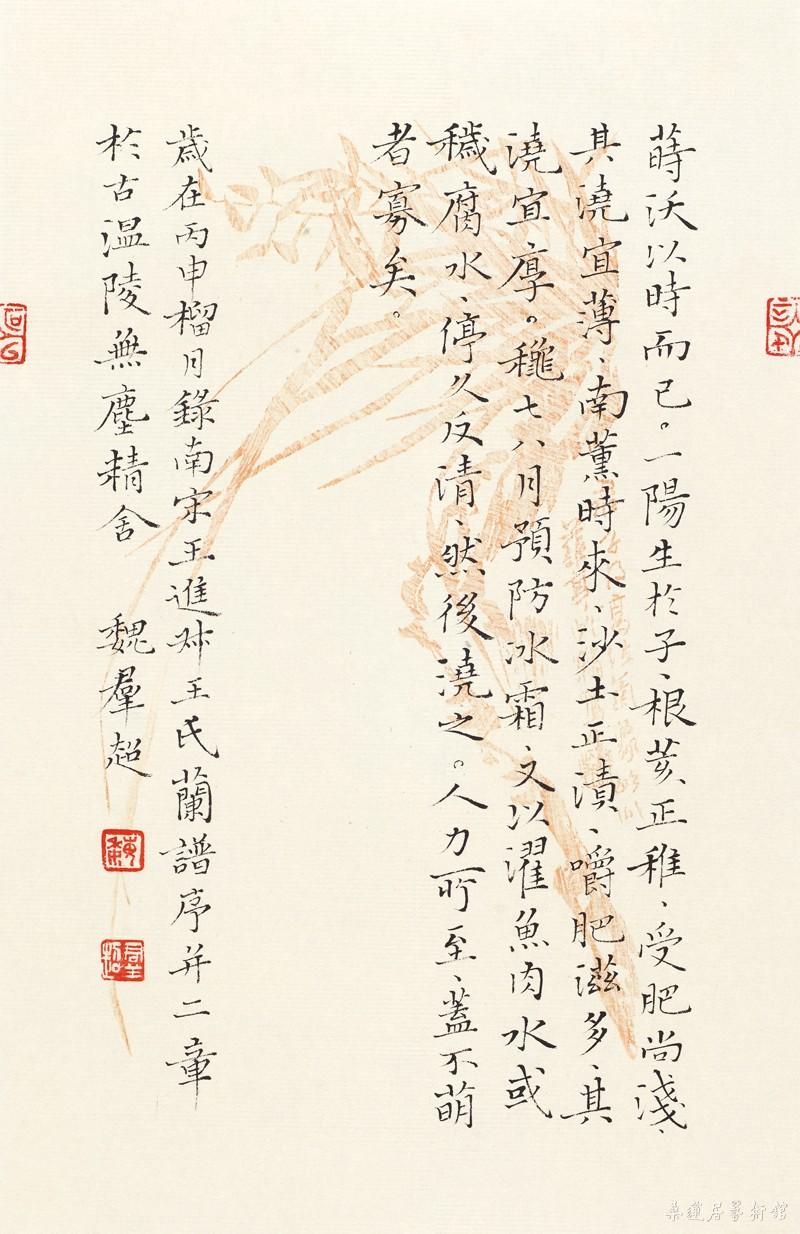 蒔沃以時而已。一陽生於子、根荄正稚、受肥尚淺、
其澆宜薄、南薰時來、沙土正漬、嚼肥滋多、其
澆宜厚。龝七八月預防冰霜、又以濯魚肉水或
穢腐水、停久反清、然後澆之。人力所至、蓋不萌
者寡矣。
歲在丙申榴月錄南宋王進叔王氏蘭譜序并二章
於古温陵無塵精舍 魏羣超
魏
羣超
桑蓮居藝術館